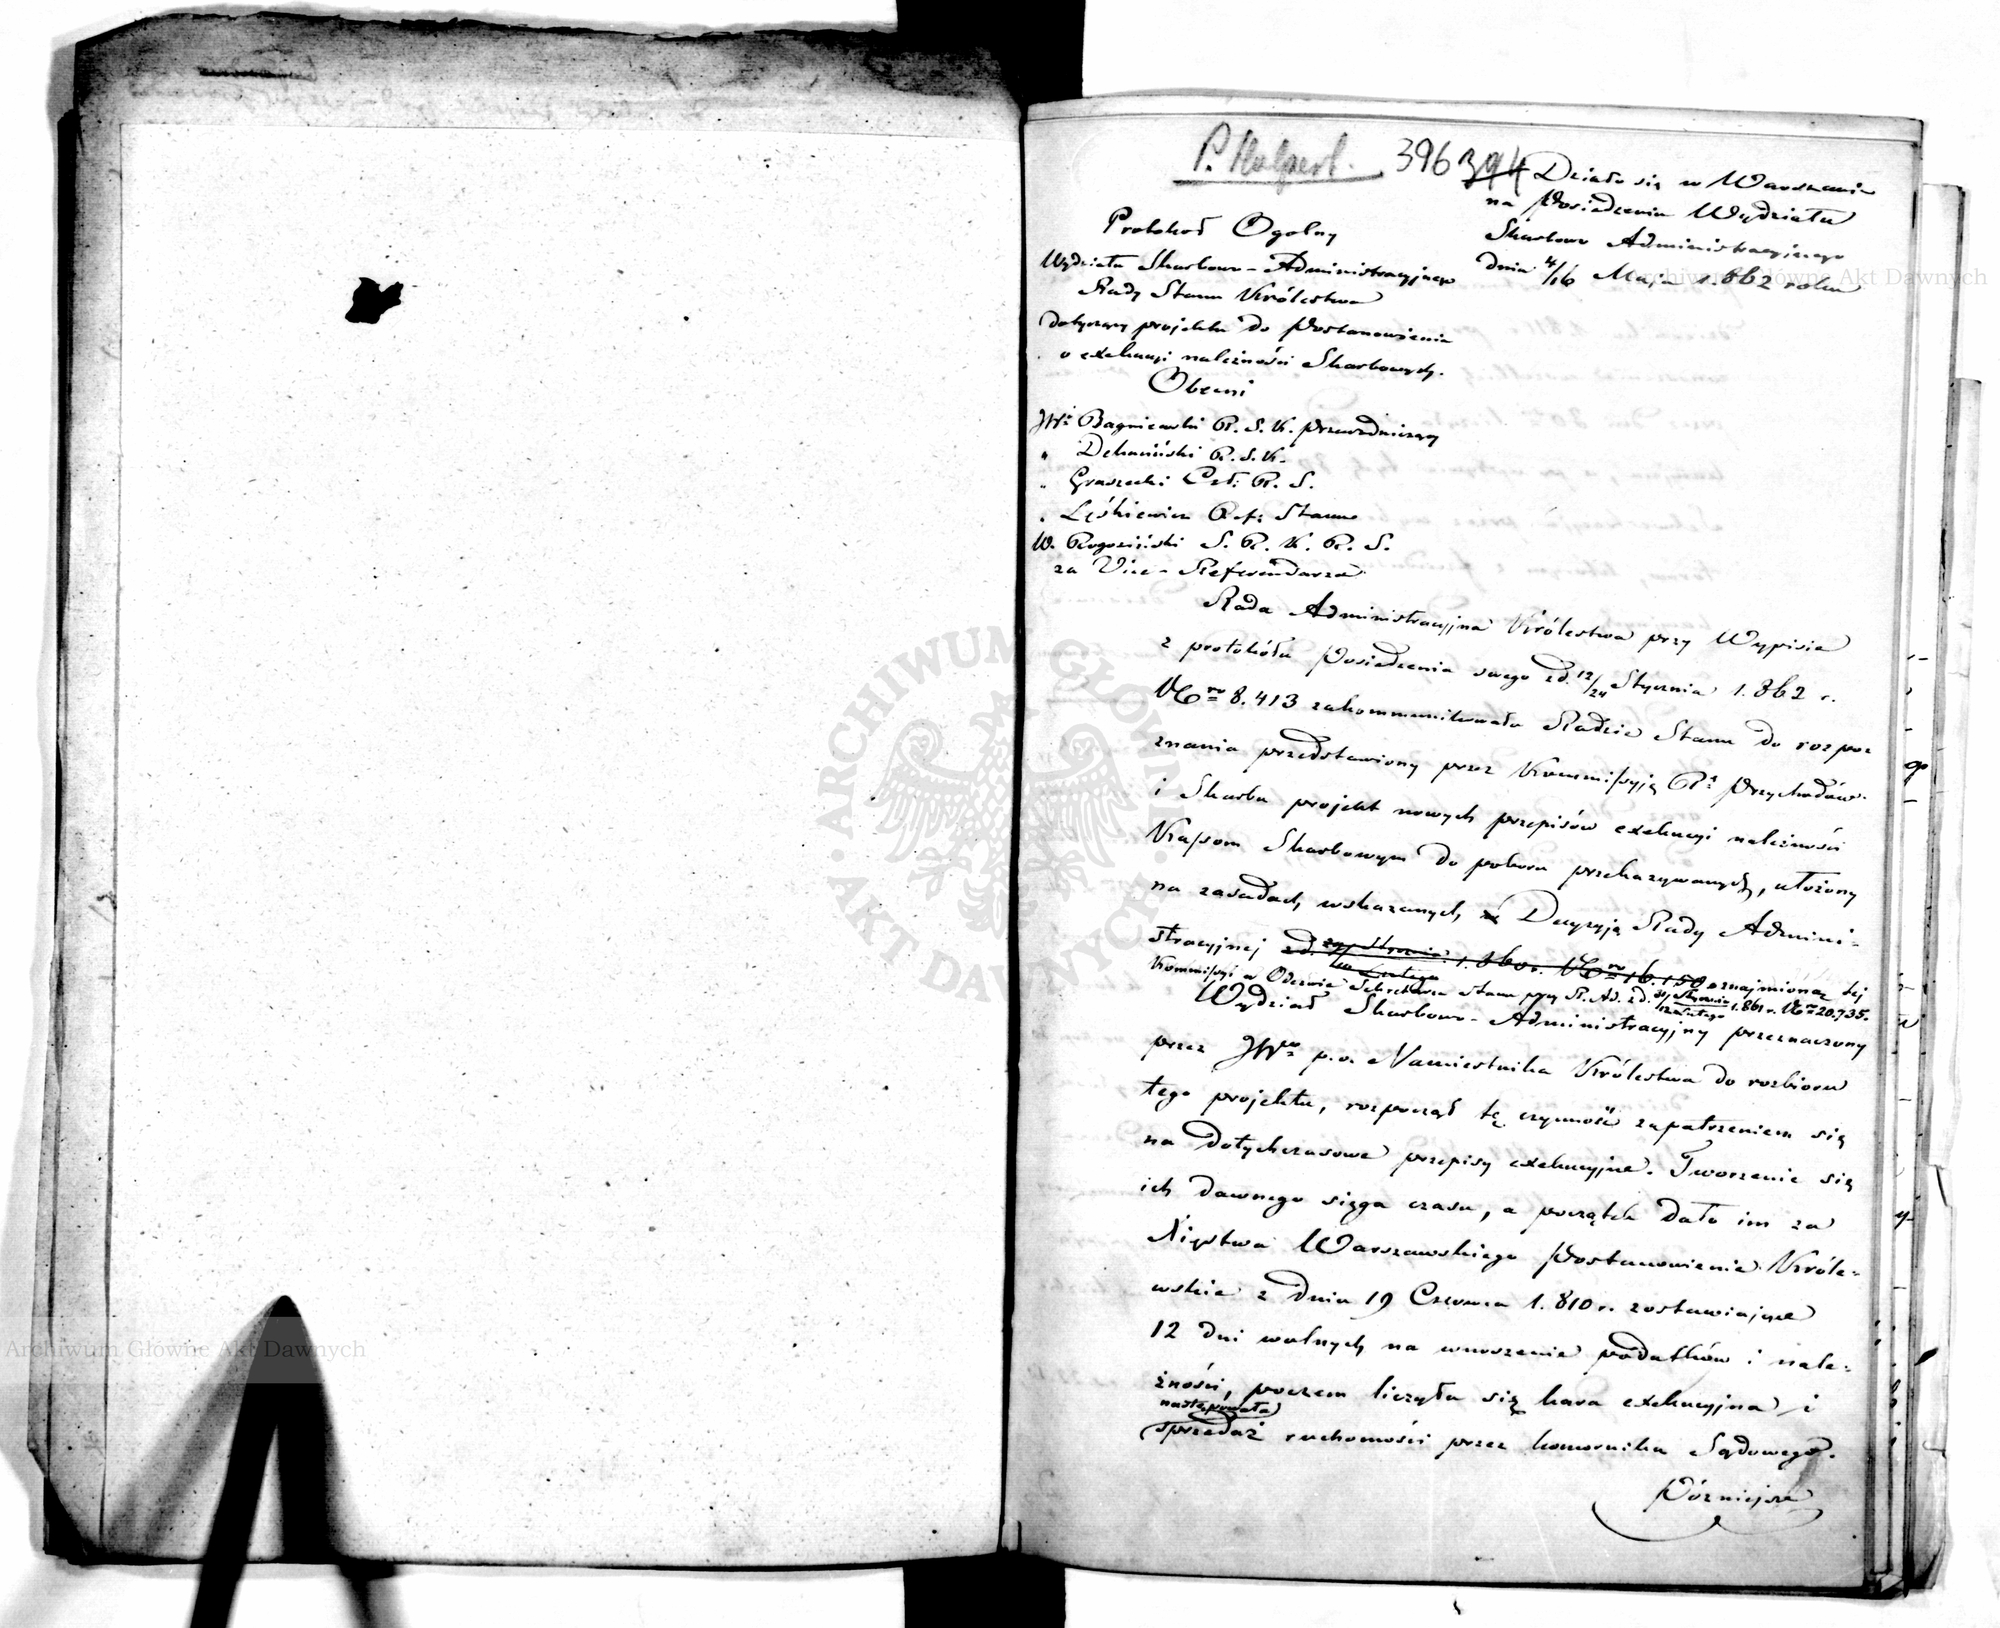 P. Halpert.
396 394
Działo się w Warszawie
na Posiedzeniu Wydziału
Skarbowo Administracyjnego
dnia 4/16 Maja 1.862 roku
Protokoł Ogolny
Wydziału Skarbowo-Administracyjnego
Rady Stanu Królestwa
dotyczący projektu do Postanowienia
o exekucyi należności Skarbowych.
Obecni
JWi Bagniewski R. S. K. Przewodniczący
" Dekuciński R. S. K.
" Graszecki Czł: R. S.
" Leśkiewicz Ref: Stanu
W. Rogoziński S. R. K. R. S.
za Vice-Referendarza
Rada Administracyjna Królestwa przy Wypisie
z protokółu Posiedzenia swego z d. 12/24 Stycznia 1.862 r.
Nro 8.413 zakommunikowała Radzie Stanu do rozpo-
znania przedstawiony przez Kommissyją Rą Przychodów
i Skarbu projekt nowych przepisów exekucyi należności
Kassom Skarbowym do poboru przekazywanych, ułożony
na zasadach, wskazanych, Decyzyją Rady Admini-
stracyjnej z d. Stycznia/Lutego 1.860 r. Nro 16.150 oznajmioną tej
Kommissyi w Odezwie Sekretarza Stanu przy R. Ad. z d. 31/12 Stycznia/Lutego 1.861 r. Nro 20.735.
Wydział Skarbowo-Administracyjny przeznaczony
przez JWgo p.o. Namiestnika Królestwa do rozbioru
tego projektu, rozpoczął tę czynność zapatrzeniem się
na dotychczasowe przepisy exekucyjne. Tworzenie się
ich dawnego sięga czasu, a początek dało im za
Xięstwa Warszawskiego Postanowienie Króle-
wskie z dnia 19 Czerwca 1.810 r. zostawiające
12 dni wolnych na wnoszenie podatków i nale-
żności, poczem liczyła się kara exekucyjna i
następowała
sprzedaż ruchomości przez komornika Sądowego.
Późniejsze
ARCHIWUM GŁÓWNE AKT DAWNYCH
Archiwum Główne Akt Dawnych
Archiwum Główne Akt Dawnych